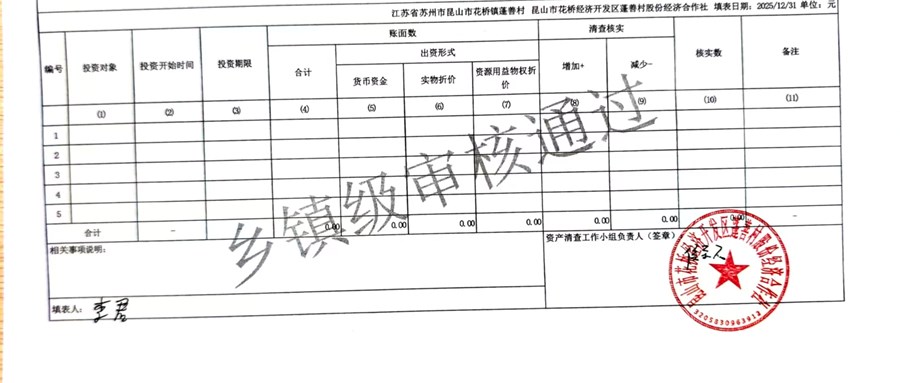 江苏省苏州市昆山市花桥镇蓬善村 昆山市花桥经济开发区蓬善村股份经济合作社 填表日期：2025/12/31 单位：元
编号 投资对象 投资开始时间 投资期限 账面数 清查核实 核实数 备注
合计 出资形式 增加+ 减少-
货币资金 实物折价 资源用益物权折价
(1) (2) (3) (4) (5) (6) (7) (8) (9) (10) (11)
1
2
3
4
5
合计 - - 0.00 0.00 0.00 0.00 0.00 0.00 0.00 -
乡镇级审核通过
相关事项说明：
资产清查工作小组负责人（签章）
填表人：李君
昆山市花桥经济开发区蓬善村股份经济合作社